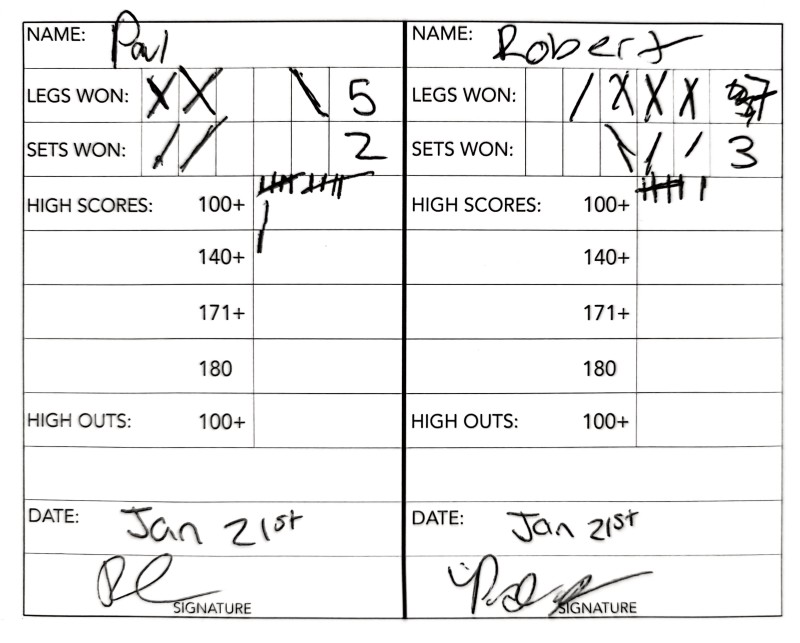 NAME: Paul
LEGS WON: X X \ 5
SETS WON: / / 2
HIGH SCORES: 100+
140+
171+
180
HIGH OUTS: 100+
DATE: Jan 21st
SIGNATURE
NAME: Robert
LEGS WON: / X X X 7
SETS WON: \ / / 3
HIGH SCORES: 100+
140+
171+
180
HIGH OUTS: 100+
DATE: Jan 21st
SIGNATURE